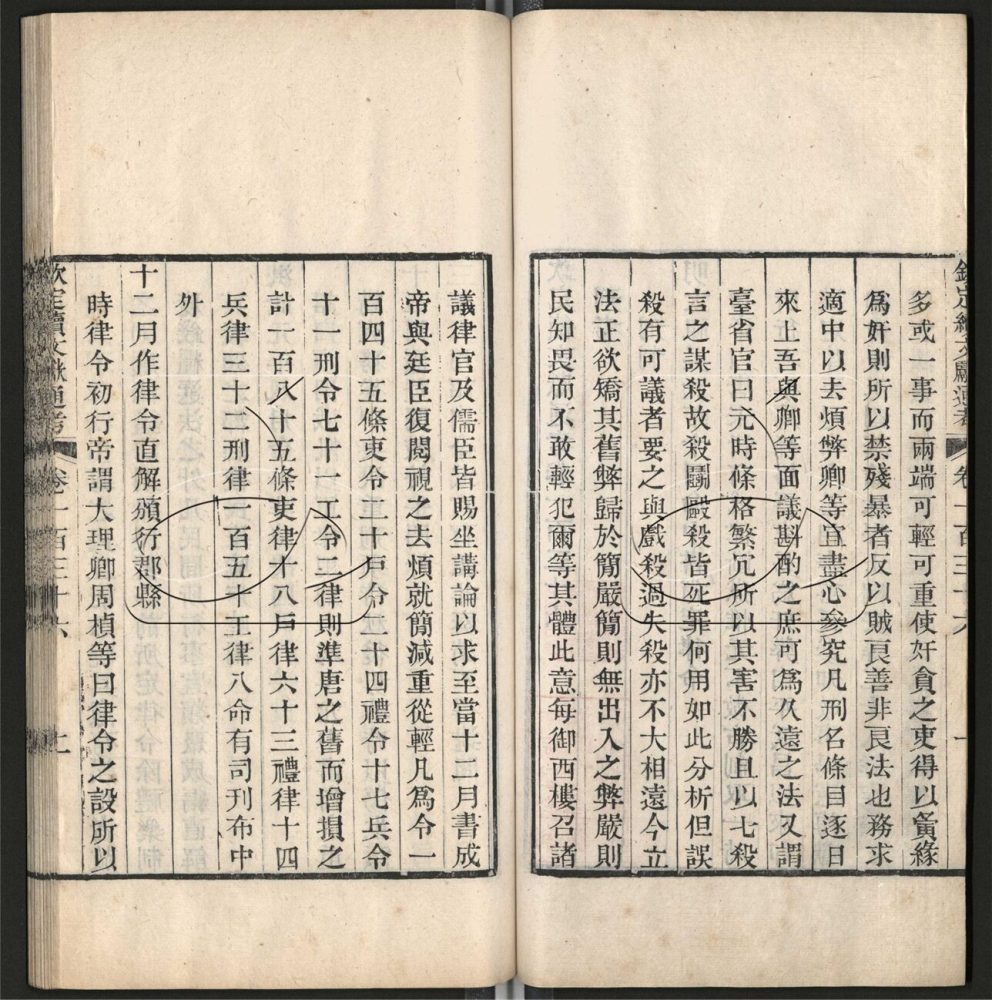 欽定續文獻通考 卷一百三十六
多或一事而兩端可輕可重使奸貪之吏得以夤緣
爲奸則所以禁殘暴者反以賊良善非良法也務求
適中以去煩弊卿等宜盡心參究凡刑名條目逐日
來上吾與卿等面議斟酌之庶可爲久遠之法又謂
臺省官曰元時條格繁冗所以其害不勝且以七殺
言之謀殺故殺鬬毆殺皆死罪何用如此分析但誤
殺有可議者要之與戲殺過失殺亦不大相遠今立
法正欲矯其舊弊歸於簡嚴簡則無出入之弊嚴則
民知畏而不敢輕犯爾等其體此意每御西樓召諸
議律官及儒臣皆賜坐講論以求至當十二月書成
帝與廷臣復閱視之去煩就簡減重從輕凡爲令一
百四十五條吏令二十戸令二十四禮令十七兵令
十一刑令七十一工令二律則準唐之舊而增損之
計二百八十五條吏律十八戸律六十三禮律十四
兵律三十二刑律一百五十工律八命有司刊布中
外
十二月作律令直解頒行郡縣
時律令初行帝謂大理卿周楨等曰律令之設所以
欽定續文獻通考 卷一百三十六